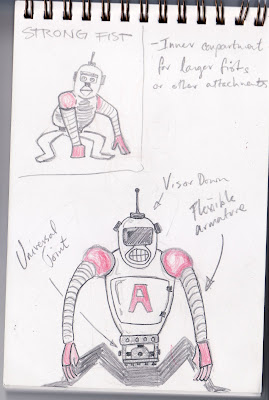 STRONG FIST
-Inner compartment
for larger fists
or other attachments
Visor Down
Flexible
armature
Universal
Joint
A